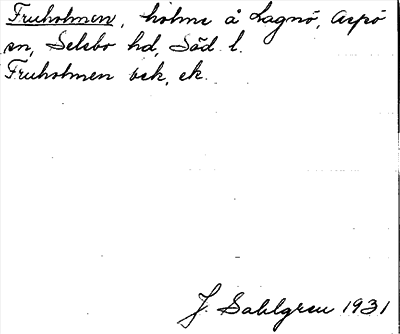 Fruholmen, holme å Lagnö, Aspö
sn, Selebo hd, Söd. l.
Fruholmen bek, ek.
J. Sahlgren 1931